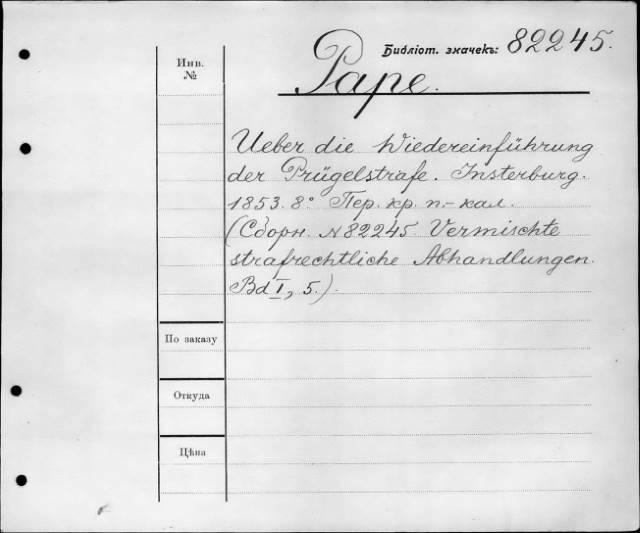 Инв.
№
Библіот. значекъ: 82245.
Pape.
Ueber die Wiedereinführung
der Prügelstrafe. Insterburg.
1853. 8° Пер. кр. п.- кал.
(Сборн. №82245. Vermischte
strafrechtliche Abhandlungen.
Bd I, 5.)
По заказу
Откуда
Цѣна